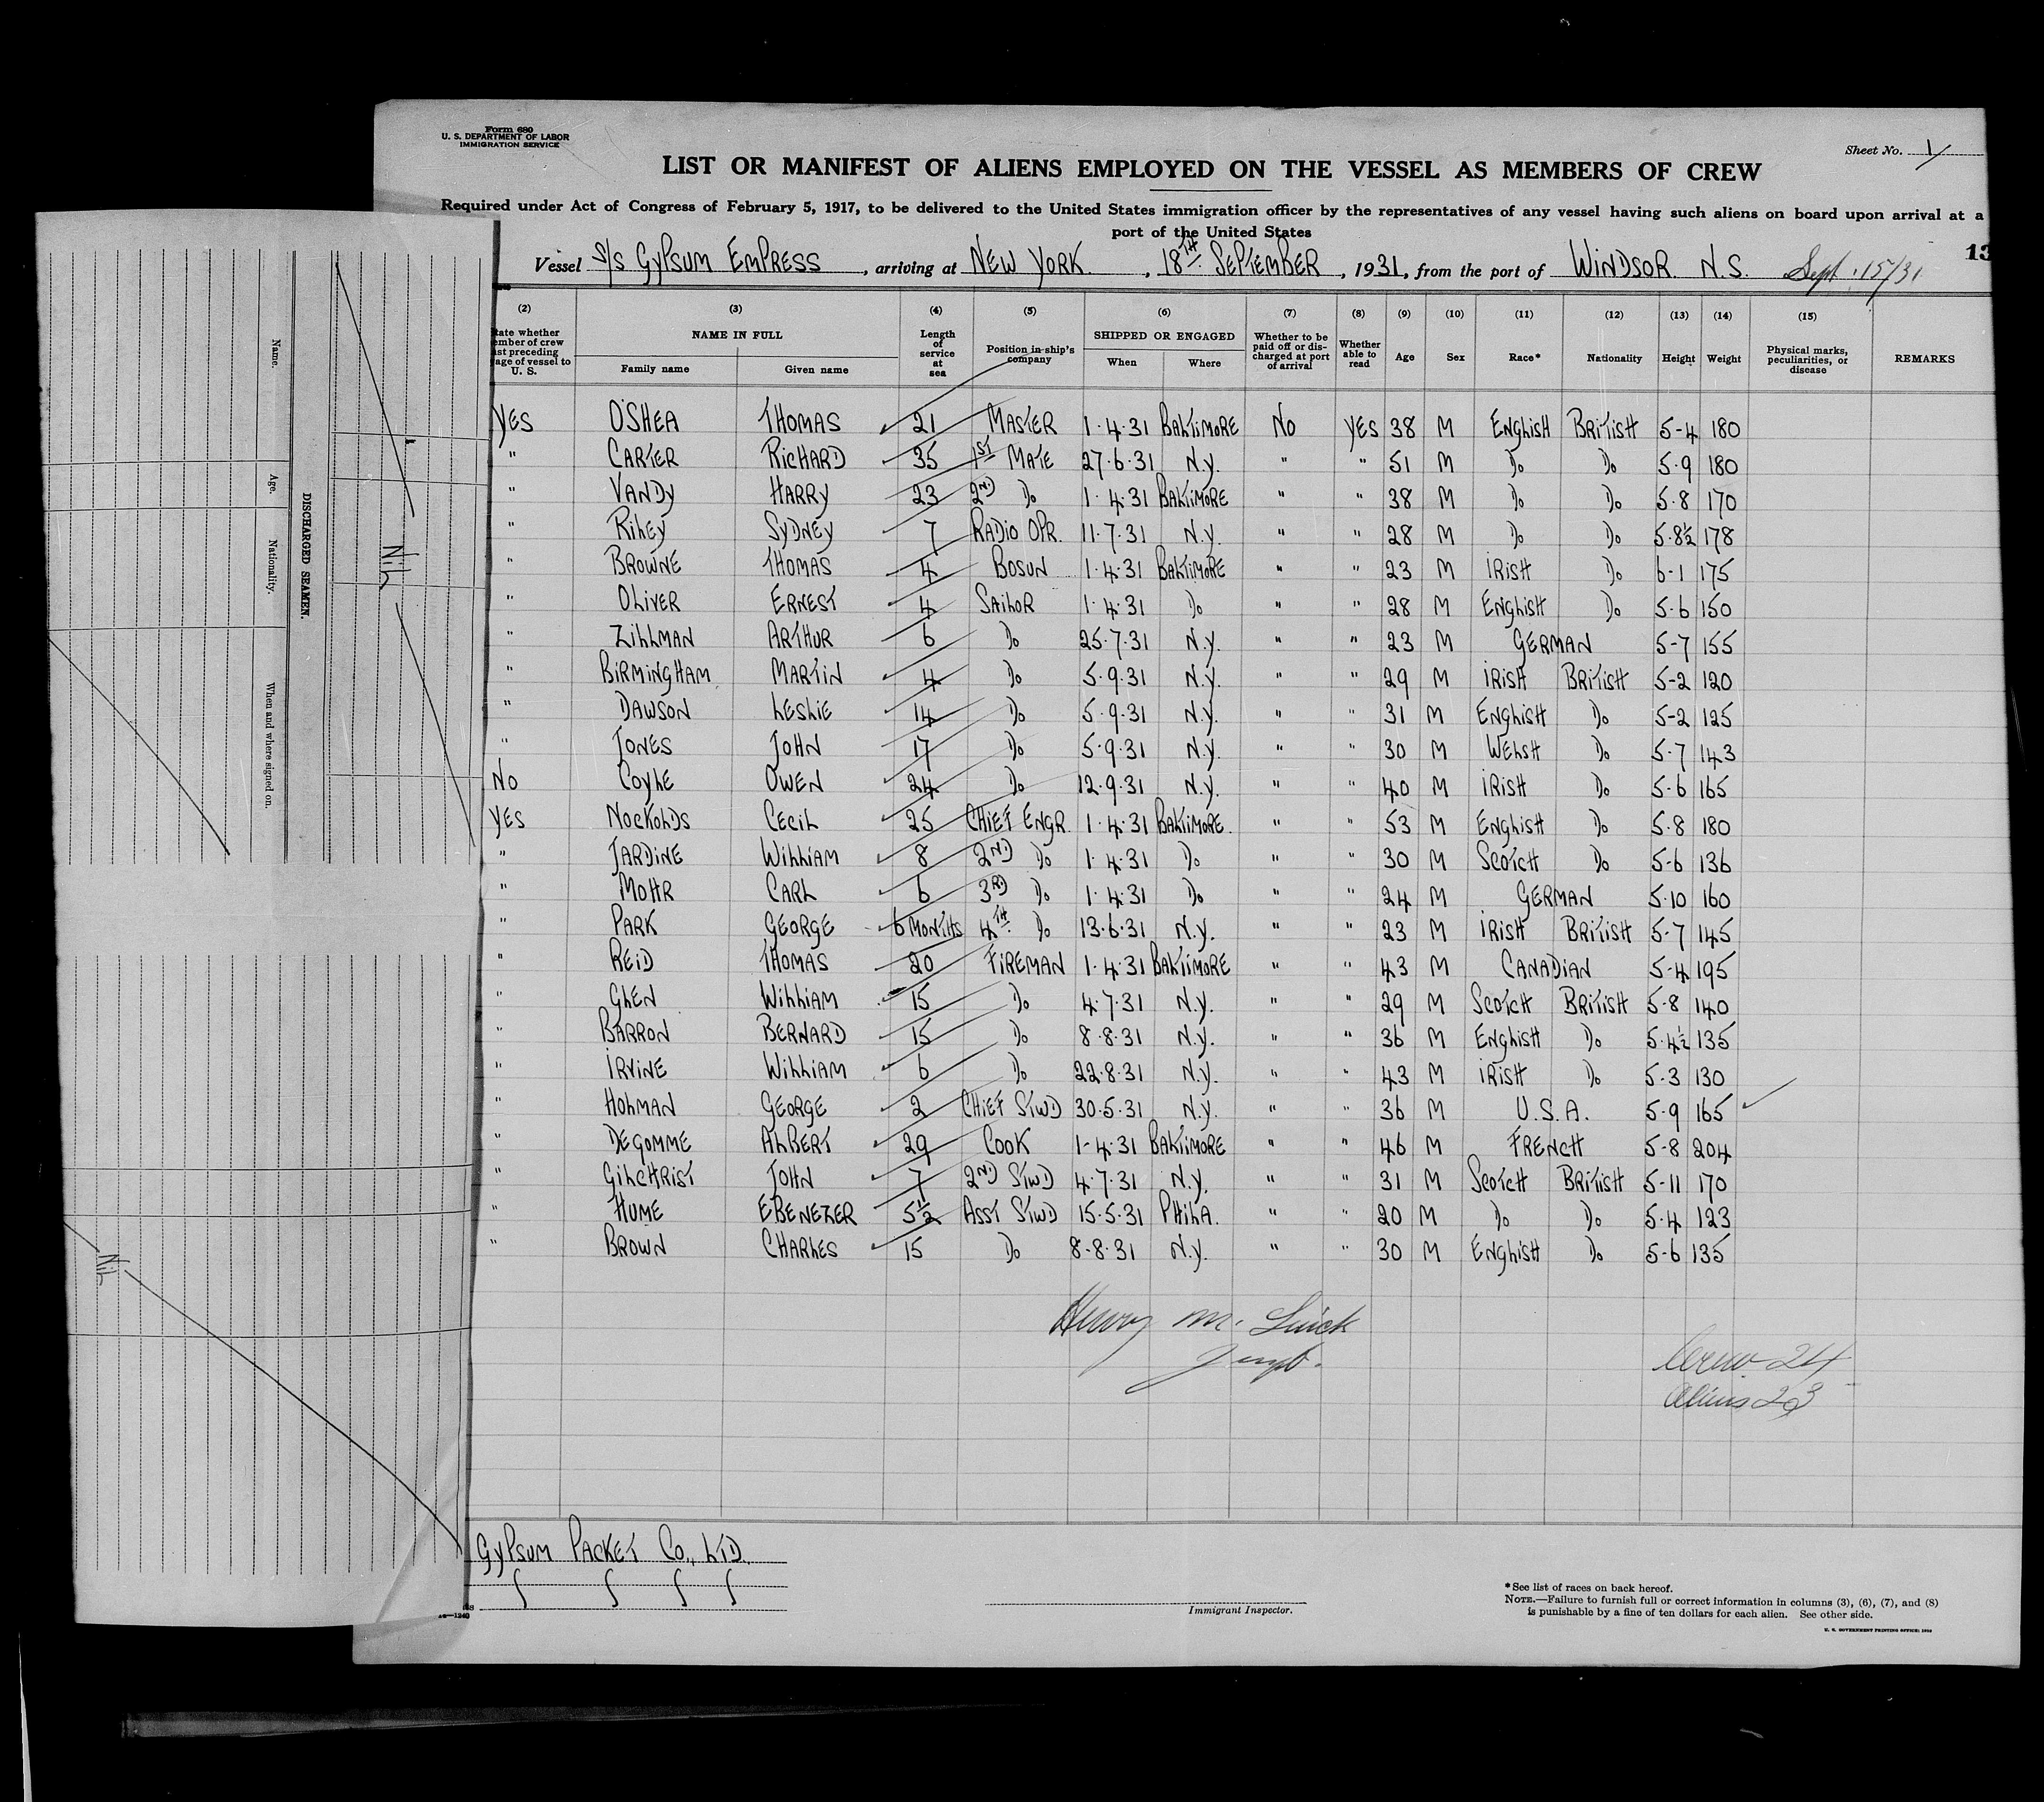 Form 680
U. S. DEPARTMENT OF LABOR
IMMIGRATION SERVICE
Sheet No. 1/
LIST OR MANIFEST OF ALIENS EMPLOYED ON THE VESSEL AS MEMBERS OF CREW
Required under Act of Congress of February 5, 1917, to be delivered to the United States immigration officer by the representatives of any vessel having such aliens on board upon arrival at a
port of the United States
13
Vessel S/S GYPSUM EMPRESS, arriving at NEW YORK, 18TH SEPTEMBER, 1931, from the port of WINDSOR N.S. Sept. 15/31
(2) (3) (4) (5) (6) (7) (8) (9) (10) (11) (12) (13) (14) (15)
tate whether ember of crew ast preceding age of vessel to U. S. NAME IN FULL Family name Given name Length of service at sea Position in ship's company SHIPPED OR ENGAGED When Where Whether to be paid off or discharged at port of arrival Whether able to read Age Sex Race* Nationality Height Weight Physical marks, peculiarities, or disease REMARKS
YES O'SHEA THOMAS 21 MASTER 1·4·31 BALTIMORE NO YES 38 M ENGLISH BRITISH 5-4 180
" CARTER RICHARD 35 1ST MATE 27·6·31 N.Y. " " 51 M DO DO 5·9 180
" VANDY HARRY 23 2ND DO 1·4·31 BALTIMORE " " 38 M DO DO 5·8 170
" RILEY SYDNEY 7 RADIO OPR. 11·7·31 N.Y. " " 28 M DO DO 5·8½ 178
" BROWNE THOMAS 4 BOSUN 1·4·31 BALTIMORE " " 23 M IRISH DO 6-1 175
" OLIVER ERNEST 4 SAILOR 1·4·31 DO " " 28 M ENGLISH DO 5·6 150
" ZILLMAN ARTHUR 6 DO 25·7·31 N.Y. " " 23 M GERMAN 5-7 155
" BIRMINGHAM MARTIN 4 DO 5·9·31 N.Y. " " 29 M IRISH BRITISH 5-2 120
" DAWSON LESLIE 14 DO 5·9·31 N.Y. " " 31 M ENGLISH DO 5-2 125
" JONES JOHN 17 DO 5·9·31 N.Y. " " 30 M WELSH DO 5-7 143
NO COYLE OWEN 24 DO 12·9·31 N.Y. " " 40 M IRISH DO 5-6 165
YES NOCKOLDS CECIL 25 CHIEF ENGR. 1·4·31 BALTIMORE " " 53 M ENGLISH DO 5·8 180
" JARDINE WILLIAM 8 2ND DO 1·4·31 DO " " 30 M SCOTCH DO 5-6 136
" MOHR CARL 6 3RD DO 1·4·31 DO " " 24 M GERMAN 5·10 160
" PARK GEORGE 6 MONTHS 4TH DO 13·6·31 N.Y. " " 23 M IRISH BRITISH 5-7 145
" REID THOMAS 20 FIREMAN 1·4·31 BALTIMORE " " 43 M CANADIAN 5-4 195
" GLEN WILLIAM 15 DO 4·7·31 N.Y. " " 29 M SCOTCH BRITISH 5-8 140
" BARRON BERNARD 15 DO 8·8·31 N.Y. " " 36 M ENGLISH DO 5·4½ 135
" IRVINE WILLIAM 6 DO 22·8·31 N.Y. " " 43 M IRISH DO 5-3 130
" HOLMAN GEORGE 2 CHIEF STWD 30·5·31 N.Y. " " 36 M U.S.A. 5·9 165 ✓
" DEGOMME ALBERT 29 COOK 1-4·31 BALTIMORE " " 46 M FRENCH 5-8 204
" GILCHRIST JOHN 7 2ND STWD 4·7·31 N.Y. " " 31 M SCOTCH BRITISH 5-11 170
" HUME EBENEZER 5½ ASST STWD 15·5·31 PHILA. " " 20 M DO DO 5·4 123
" BROWN CHARLES 15 DO 8-8·31 N.Y. " " 30 M ENGLISH DO 5-6 135
Henry M.
Crew 24
Aliens 23
GYPSUM PACKET CO., LTD.
Immigrant Inspector.
*See list of races on back hereof.
NOTE.—Failure to furnish full or correct information in columns (3), (6), (7), and (8)
is punishable by a fine of ten dollars for each alien. See other side.
U. S. GOVERNMENT PRINTING OFFICE
DISCHARGED SEAMEN.
Name.
Age.
Nationality.
When and where signed on.
NIL
NIL